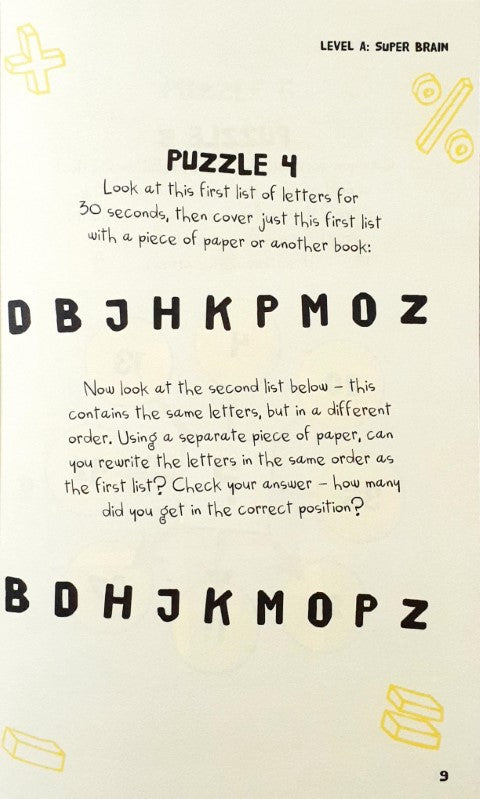 LEVEL A: SUPER BRAIN
PUZZLE 4
Look at this first list of letters for
30 seconds, then cover just this first list
with a piece of paper or another book:
D B J H K P M O Z
Now look at the second list below – this
contains the same letters, but in a different
order. Using a separate piece of paper, can
you rewrite the letters in the same order as
the first list? Check your answer – how many
did you get in the correct position?
B D H J K M O P Z
9